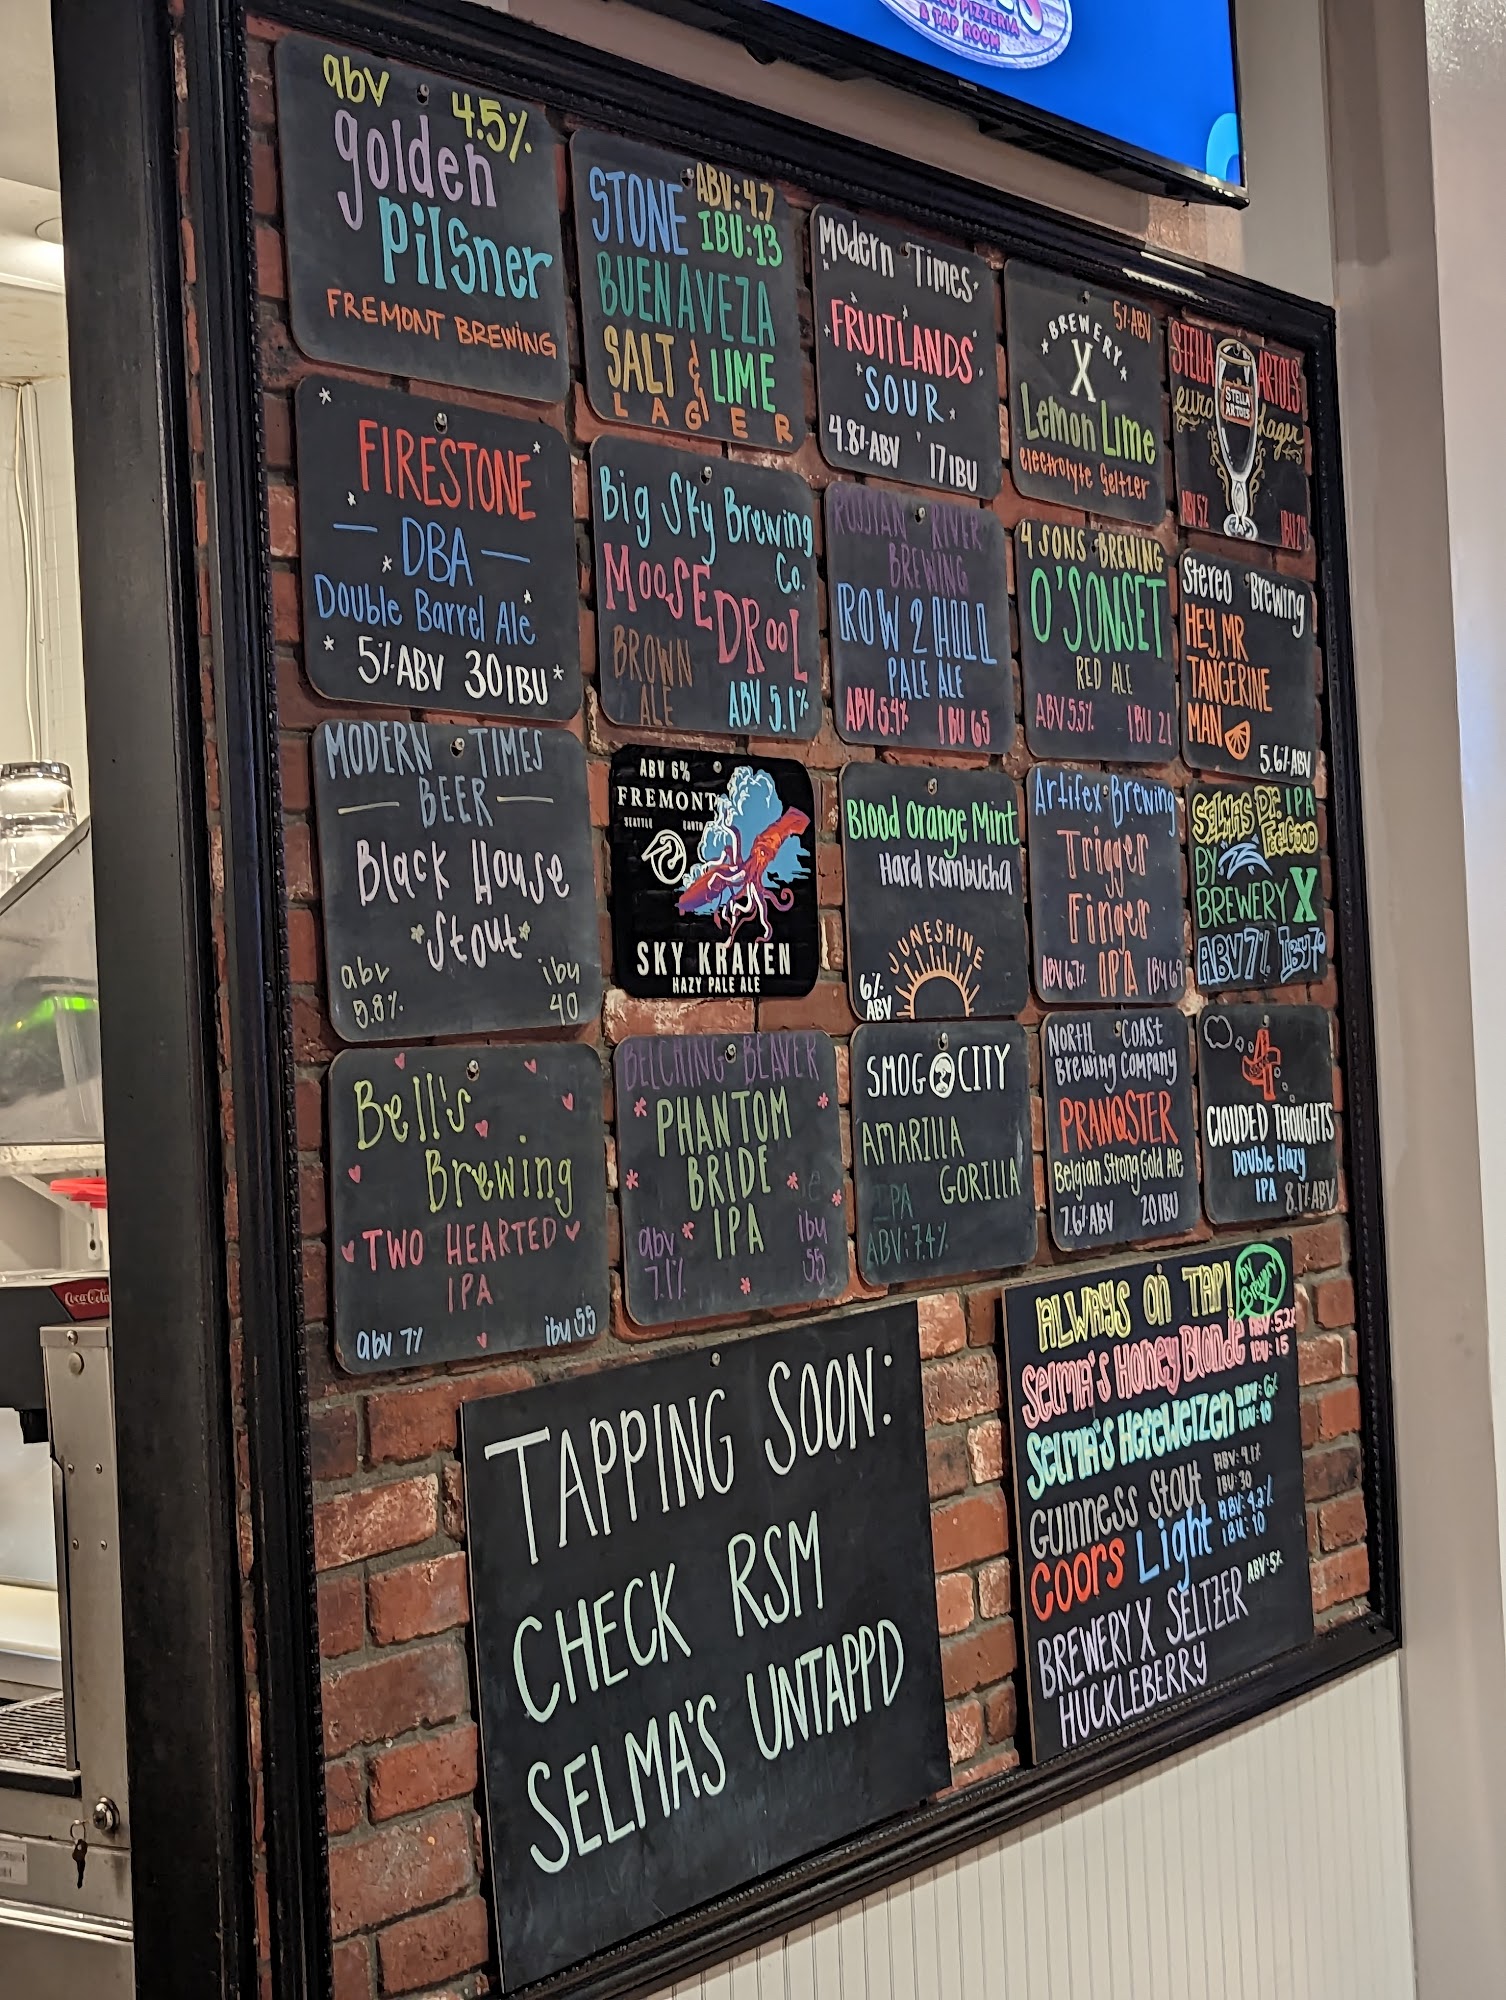 PIZZERIA
& TAP ROOM
abv 4.5%
golden
Pilsner
FREMONT BREWING
STONE ABV: 4.7
IBU: 13
BUENAVEZA
SALT & LIME
LAGER
Modern Times
FRUITLANDS
SOUR
4.8% ABV 17 IBU
5% ABV
BREWERY
X
Lemon Lime
electrolyte Seltzer
STELLA ARTOIS
STELLA
ARTOIS
euro Lager
ABV 5%
FIRESTONE
- DBA -
Double Barrel Ale
5% ABV 30 IBU
Big Sky Brewing
Co.
MOOSE
DROOL
BROWN
ALE
ABV 5.1%
RUSSIAN RIVER
BREWING
ROW 2 HILL
PALE ALE
ABV 5.4% IBU 65
4 SONS BREWING
O'SONSET
RED ALE
ABV 5.5% IBU 21
Stereo Brewing
HEY, MR
TANGERINE
MAN
5.6% ABV
MODERN TIMES
- BEER -
Black House
Stout
abv ibu
5.8% 40
ABV 6%
FREMONT
SEATTLE EARTH
SKY KRAKEN
HAZY PALE ALE
Blood Orange Mint
Hard Kombucha
JUNESHINE
6%
ABV
Artifex Brewing
Trigger
Finger
IPA
ABV 6.7% IBU 69
SELMAS DR. IPA
FEELGOOD
BY
BREWERY X
ABV 7% IBU 70
Bell's
Brewing
TWO HEARTED
IPA
abv 7% ibu 55
BELCHING BEAVER
PHANTOM
BRIDE
IPA
abv ibu
7.1% 55
SMOG CITY
AMARILLA
GORILLA
IPA
ABV: 7.4%
NORTH COAST
Brewing Company
PRANQSTER
Belgian Strong Gold Ale
7.6% ABV 20 IBU
CLOUDED THOUGHTS
Double Hazy
IPA 8.1% ABV
Coca-Cola
TAPPING SOON:
CHECK RSM
SELMA'S UNTAPPD
ALWAYS ON TAP!
by Brewery X
SELMA'S HONEY BLONDE ABV: 5.2%
IBU: 15
SELMA'S HEFEWEIZEN ABV: 6%
IBU: 10
GUINNESS STOUT ABV: 4.1%
IBU: 30
COORS Light ABV: 4.2%
IBU: 10
BREWERY X SELTZER ABV: 5%
HUCKLEBERRY